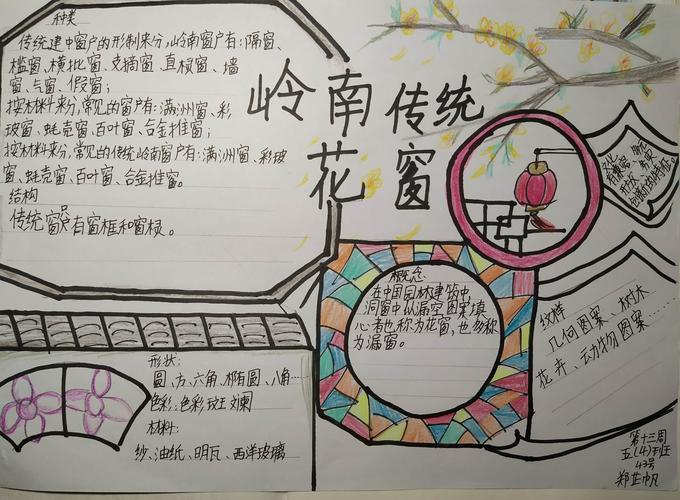 岭南传统
花窗
种类
传统建中窗户的形制来分,岭南窗户有:隔窗、
槛窗、横批窗、支摘窗、直棂窗、墙
窗、与窗、假窗;
按材料来分,常见的窗户有:满洲窗、彩
玻窗、蚝壳窗、百叶窗、合金推窗;
按材料来分,常见的传统岭南窗户有:满洲窗、彩玻
窗、蚝壳窗、百叶窗、合金推窗。
结构
传统窗只有窗框和窗棂。
概念
在中国园林建筑中,
洞窗中以漏空图案填
心者也称为花窗,也多称
为漏窗。
文化
有兼容
开放、务实
创新的特征。
纹样
几何图案、树木
花卉、动物图案……
形状:
圆、方、六角、椭圆、八角…
色彩:色彩斑斓
材料:
纱、油纸、明瓦、西洋玻璃
第十三周
五(4)班
43号
郑芷帆